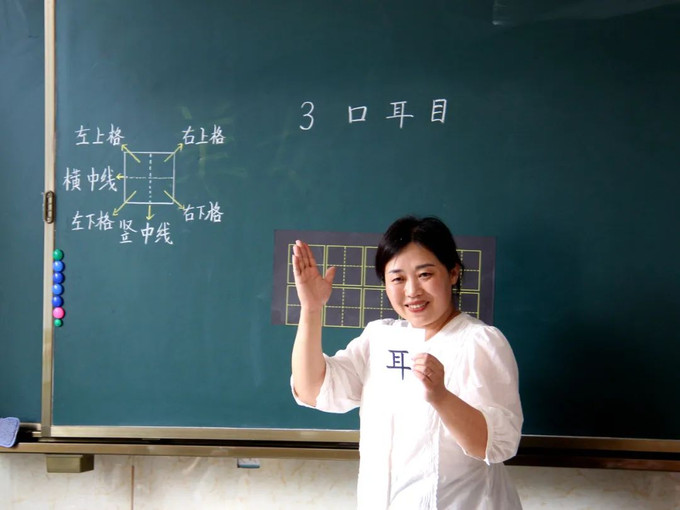 3 口 耳 目
左上格
右上格
横中线
左下格
右下格
竖中线
耳